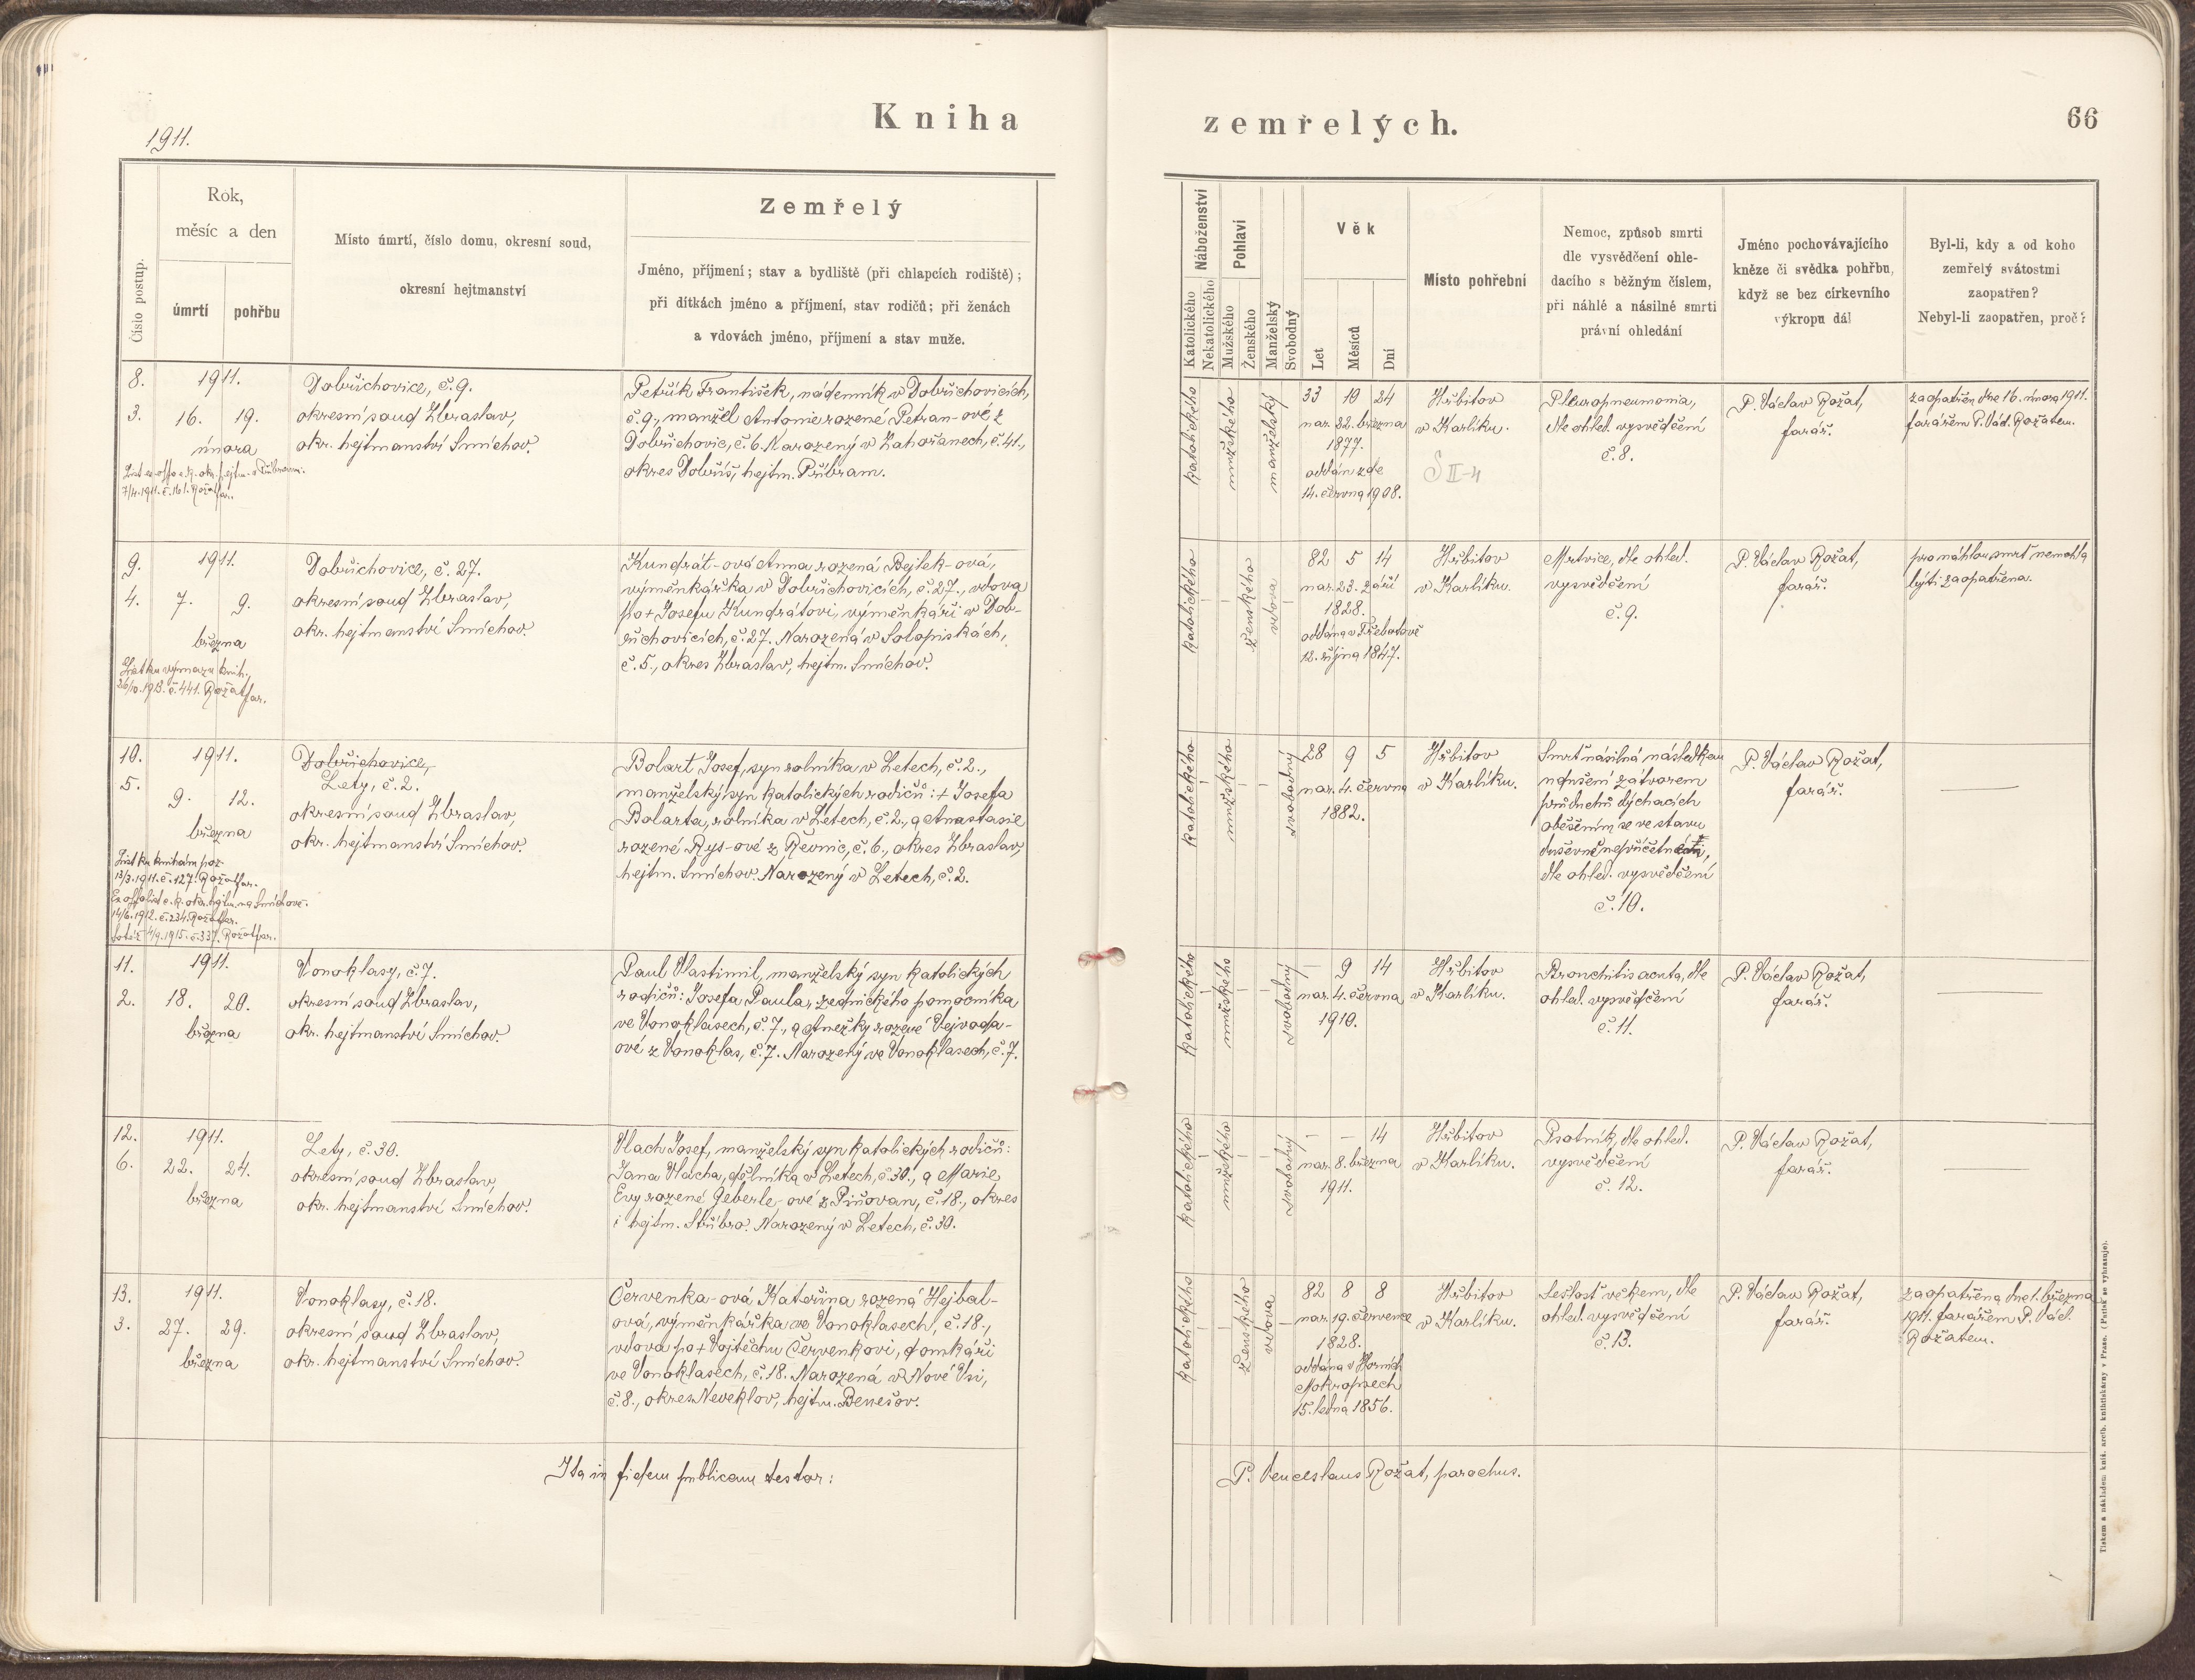 Kniha zemřelých.
66
1911.
Číslo postup.
Rok,
měsíc a den
úmrtí
pohřbu
Místo úmrtí, číslo domu, okresní soud,
okresní hejtmanství
Zemřelý
Jméno, příjmení; stav a bydliště (při chlapcích rodiště);
při dítkách jméno a příjmení, stav rodičů; při ženách
a vdovách jméno, příjmení a stav muže.
Náboženství
Katolického
Nekatolického
Pohlaví
Mužského
Ženského
Manželský
Svobodný
Věk
Let
Měsíců
Dní
Místo pohřební
Nemoc, způsob smrti
dle vysvědčení ohle-
dacího s běžným číslem,
při náhlé a násilné smrti
právní ohledání
Jméno pochovávajícího
kněze či svědka pohřbu,
když se bez církevního
výkropu dál
Byl-li, kdy a od koho
zemřelý svátostmi
zaopatřen?
Nebyl-li zaopatřen, proč?
8.
3.
1911.
16. 19.
února
List ex offo c. k. okr. hejtm. v Příbrami.
7/4.1911. č. 161. Rožat far.
Dobřichovice, č. 9.
okresní soud Zbraslav,
okr. hejtmanství Smíchov.
Petřík František, nádenník v Dobřichovicích,
č. 9., manžel Antonie rozené Petran-ové z
Dobřichovic, č. 6. Narozený v Zahořanech, č. 41.,
okres Dobříš, hejtm. Příbram.
katolického
mužského
manželský
33 10 24
nar. 22. března
1877.
oddán zde
14. června 1908.
Hřbitov
v Karlíku.
S II-4
Pleuropneumonia,
dle ohled. vysvědčení
č. 8.
P. Václav Rožat,
farář.
zaopatřen dne 16. února 1911.
farářem P. Václ. Rožatem.
9.
4.
1911.
7. 9.
března
List ku výmazu knih.
26/10.1913. č. 441. Rožat far.
Dobřichovice, č. 27.
okresní soud Zbraslav,
okr. hejtmanství Smíchov.
Kundrát-ová Anna rozená Bejlek-ová,
výměnkářka v Dobřichovicích, č. 27., vdova
po + Josefu Kundrátovi, výměnkáři v Dob-
řichovicích, č. 27. Narozená v Solopiskách,
č. 5., okres Zbraslav, hejtm. Smíchov.
katolického
ženského
vdova
82 5 14
nar. 23. září
1828.
oddána v Třebotově
12. října 1847.
Hřbitov
v Karlíku.
Mrtvice, dle ohled.
vysvědčení
č. 9.
P. Václav Rožat,
farář.
pro náhlou smrt nemohla
býti zaopatřena.
10.
5.
1911.
9. 12.
března
List ku knihám poz.
13/3.1911. č. 127. Rožat far.
Ex offo list c. k. okr. hejtm. na Smíchově.
14/6.1912. č. 234. Rožat far.
totéž 4/9.1915. č. 337. Rožat far.
Dobřichovice,
Lety, č. 2.
okresní soud Zbraslav,
okr. hejtmanství Smíchov.
Bolart Josef, syn rolníka v Letech, č. 2.,
manželský syn katolických rodičů: + Josefa
Bolarta, rolníka v Letech, č. 2., a Anastasie
rozené Rys-ové z Řevnic, č. 6., okres Zbraslav,
hejtm. Smíchov. Narozený v Letech, č. 2.
katolického
mužského
svobodný
28 9 5
nar. 4. června
1882.
Hřbitov
v Karlíku.
Smrť násilná následkem
udušení zátvorem
průduchů dýchacích
oběšením se ve stavu
duševné nepříčetnosti,
dle ohled. vysvědčení
č. 10.
P. Václav Rožat,
farář.
11.
2.
1911.
18. 20.
března
Vonoklasy, č. 7.
okresní soud Zbraslav,
okr. hejtmanství Smíchov.
Paul Vlastimil, manželský syn katolických
rodičů: Josefa Paula, zednického pomocníka
ve Vonoklasech, č. 7., a Anežky rozené Vejvoda-
ové z Vonoklas, č. 7. Narozený ve Vonoklasech, č. 7.
katolického
mužského
svobodný
— 9 14
nar. 4. června
1910.
Hřbitov
v Karlíku.
Bronchitis acuta, dle
ohled. vysvědčení
č. 11.
P. Václav Rožat,
farář.
12.
6.
1911.
22. 24.
března
Lety, č. 30.
okresní soud Zbraslav,
okr. hejtmanství Smíchov.
Vlach Josef, manželský syn katolických rodičů:
Jana Vlacha, dělníka v Letech, č. 30., a Marie
Evy rozené Geberle-ové z Piňovan, č. 18., okres
i hejtm. Stříbro. Narozený v Letech, č. 30.
katolického
mužského
svobodný
— — 14
nar. 8. března
1911.
Hřbitov
v Karlíku.
Psotník, dle ohled.
vysvědčení
č. 12.
P. Václav Rožat,
farář.
13.
3.
1911.
27. 29.
března
Vonoklasy, č. 18.
okresní soud Zbraslav,
okr. hejtmanství Smíchov.
Červenka-ová Kateřina rozená Hejbal-
ová, výměnkářka ve Vonoklasech, č. 18.,
vdova po + Vojtěchu Červenkovi, domkáři
ve Vonoklasech, č. 18. Narozená v Nové Vsi,
č. 8., okres Neveklov, hejtm. Benešov.
katolického
ženského
vdova
82 8 8
nar. 19. července
1828.
oddána v Horních
Mokropsech
15. ledna 1856.
Hřbitov
v Karlíku.
Sešlosť věkem, dle
ohled. vysvědčení
č. 13.
P. Václav Rožat,
farář.
zaopatřena dne 1. března
1911. farářem P. Václ.
Rožatem.
Ita in fidem publicam testor:
P. Venceslaus Rožat, parochus.
Tiskem a nákladem kníž. arcib. knihtiskárny v Praze. (Patisk se vyhrazuje).